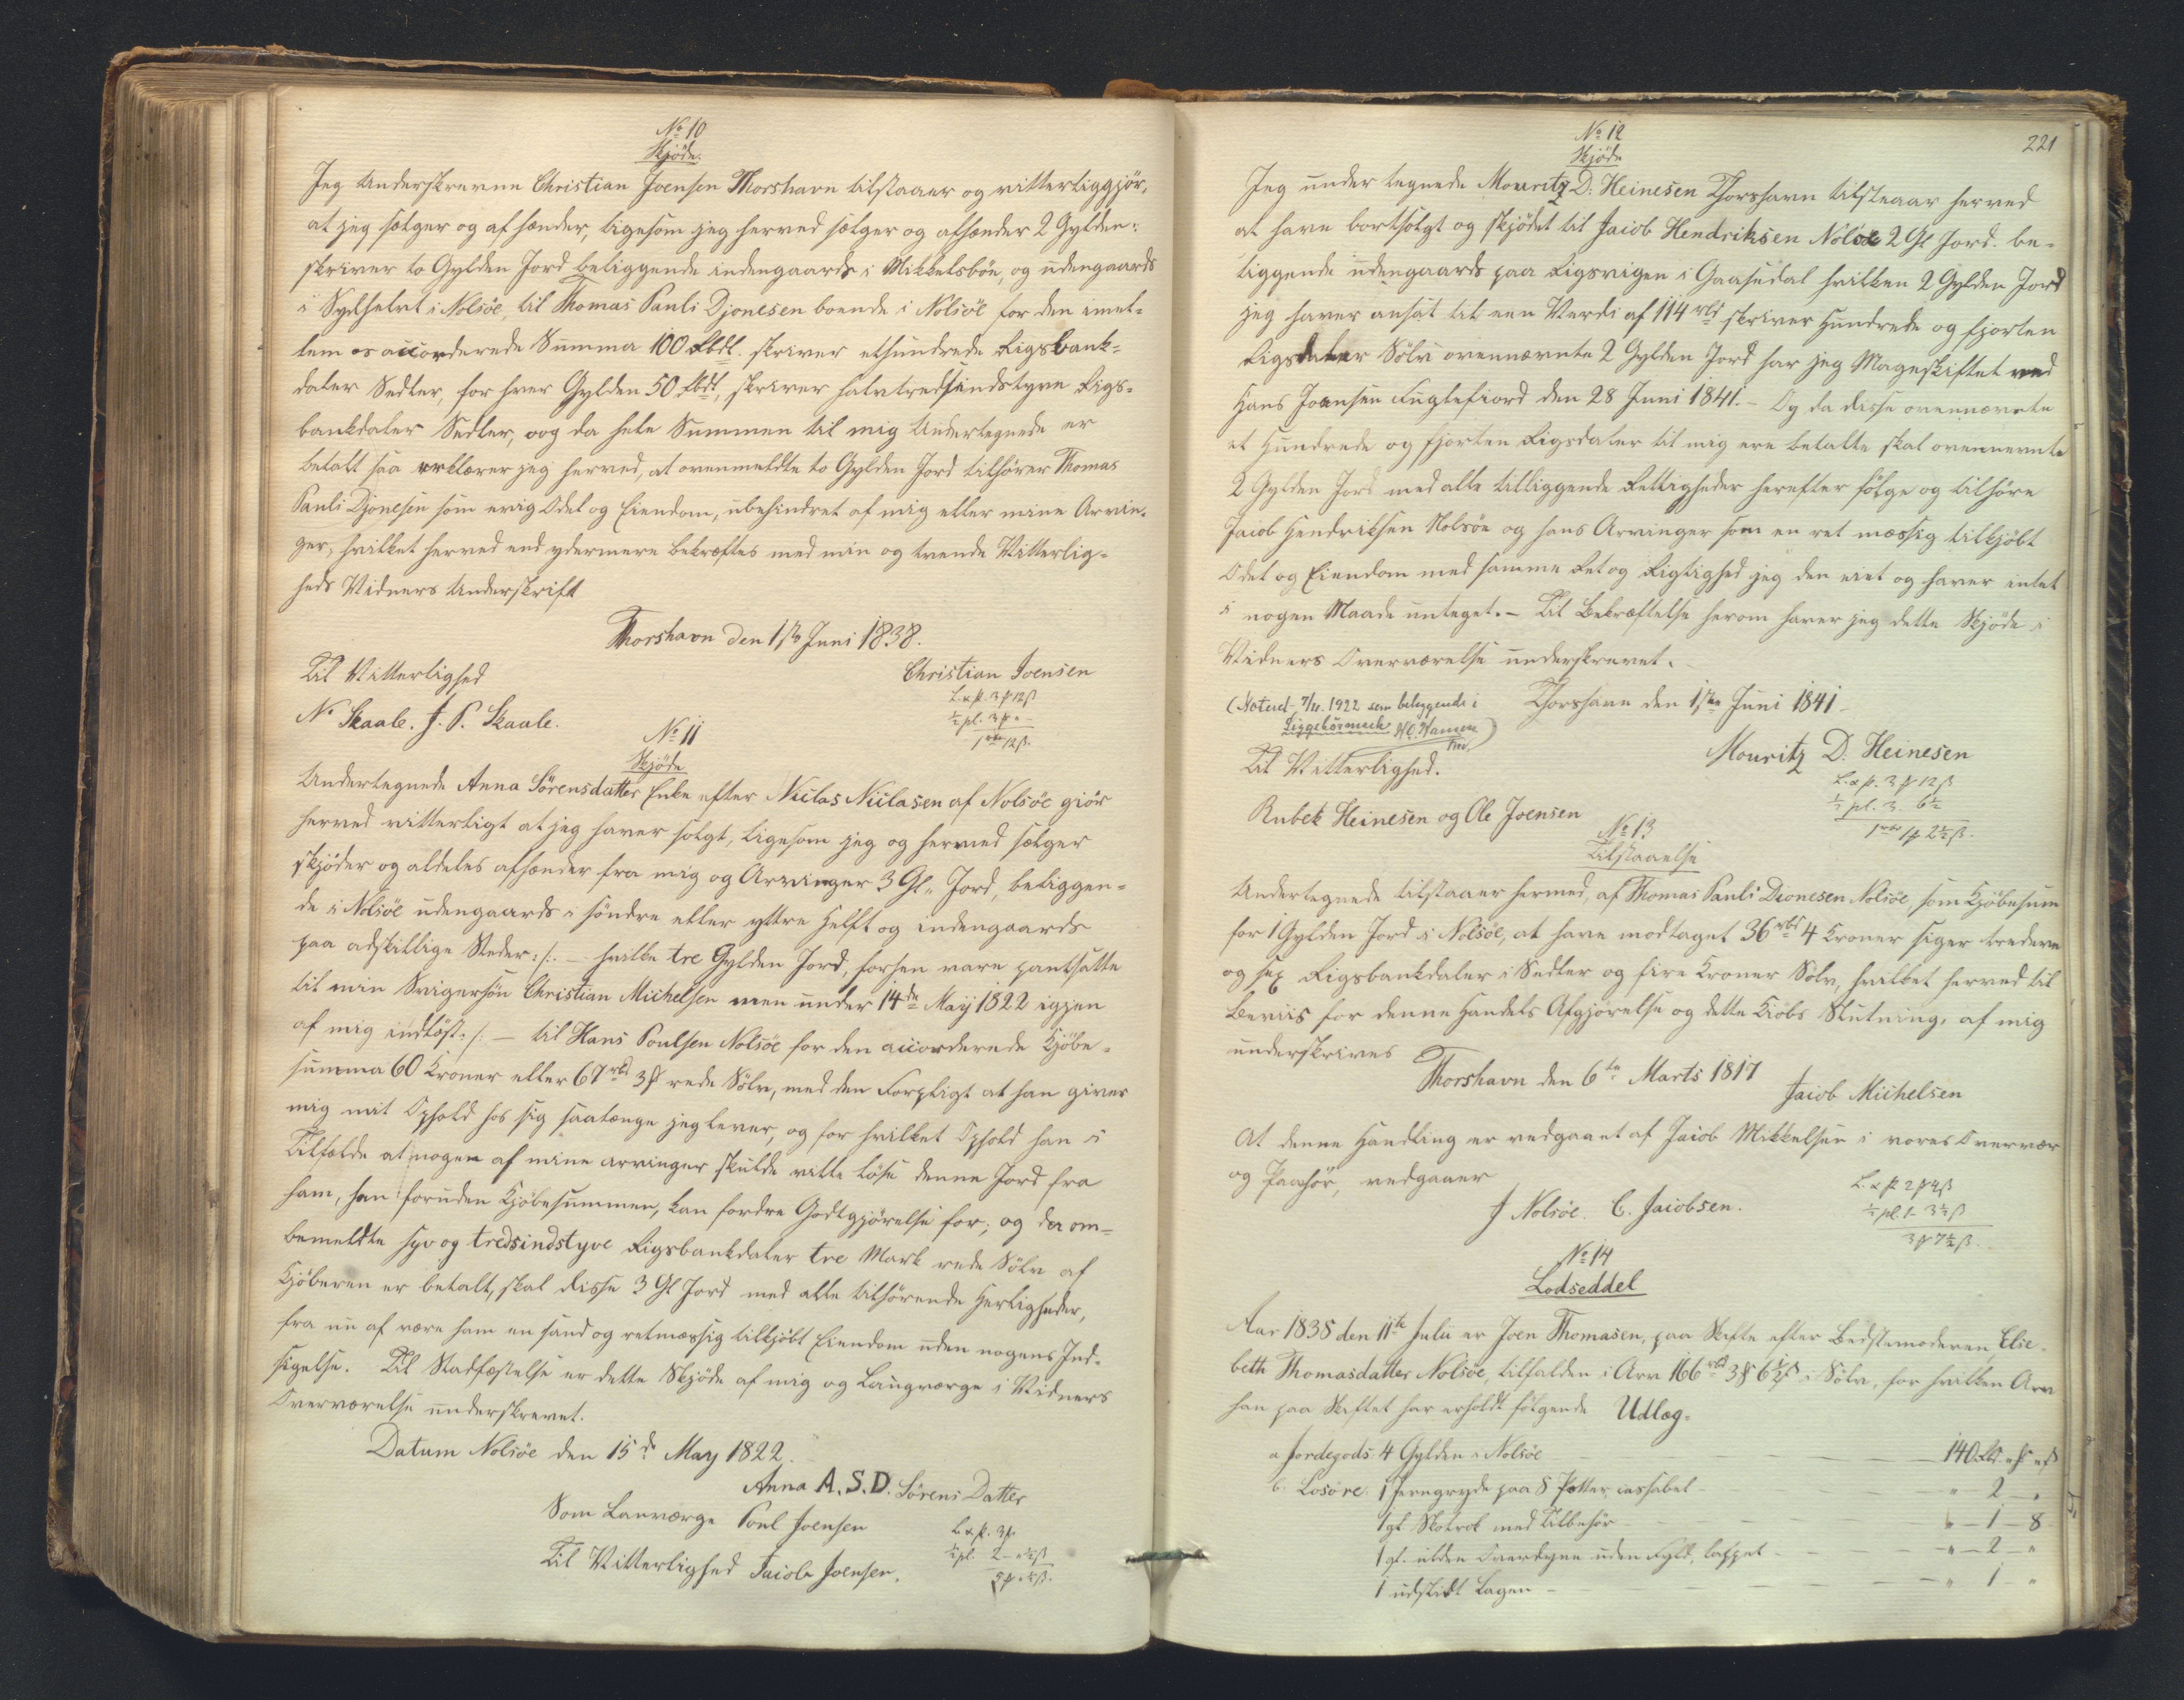 No 10
Skjöde.
Jeg Underskrevne Christian Joensen Thorshavn tilstaaer og vitterliggjör,
at jeg sælger og afhænder, ligesom jeg herved sælger og afhænder 2 Gylden:
skriver to Gylden Jord beliggende indengaards i Mikkelsböe, og udengaards
i Sydhelvt i Nolsöe, til Thomas Pauli Djonesen boende i Nolsöe for den imel-
lem os accorderede Summa 100 Rbdl. skriver ethundrede Rigsbank-
daler Sedler, for hver Gylden 50 Rbdl, skriver halvtredsindstyve Rigs-
bankdaler Sedler, og da hele Summen til mig Undertegnede er
betalt saa erklærer jeg herved, at ovenmeldte to Gylden Jord tilhörer Thomas
Pauli Djonesen som evig Odel og Eiendom, ubehindret af mig eller mine Arvin-
ger, hvilket herved end ydermere bekræftes med min og tvende Vitterlig-
heds Vidners Underskrift
Thorshavn den 1ste Juni 1838.
Til Vitterlighed
Christian Joensen
N. Skaale. J. P. Skaale.
No 11
Skjöde
Undertegnede Anna Sörensdatter Enke efter Niclas Niclasen af Nolsöe giör
herved vitterligt at jeg haver solgt, ligesom jeg og hermed sælger
skjöder og aldeles afhænder fra mig og Arvinger 3 Gl. Jord, beliggen-
de i Nolsöe udengaards i söndre eller yttre Helft og indengaards
paa adskillige Steder :/: — hvilke tre Gylden Jord, forhen vare pantsatte
til min Svigersön Christian Michelsen men under 14de Maÿ 1822 igjen
af mig indlöst :/: — til Hans Poulsen Nolsöe for den accorderede Kjöbe-
summa 60 Kroner eller 67 rbd 3 ₰ rede Sölv, med den Forpligt at han giver
mig mit Ophold hos sig saalænge jeg lever, og for hvilket Ophold han i
Tilfælde at nogen af mine arvinger skulde ville löse denne Jord fra
ham, han foruden Kjöbesummen, kan fordre Godtgjörelse for; og da om-
bemeldte syv og tredsindstyve Rigsbankdaler tre Mark rede Sölv af
Kjöberen er betalt, skal disse 3 Gl Jord med alle tilhörende Herligheder,
fra nu af være ham en sand og retmæssig tilkjöbt Eiendom uden nogens Ind-
sigelse. Til Stadfæstelse er dette Skjöde af mig og Laugværge i Vidners
Overværelse underskrevet.
Datum Nolsöe den 15de May 1822.
Anna A.S.D. Sörens Datter
Som Lauværge Poul Joensen
Til Vitterlighed Jacob Joensen.
221
No 12
Skjöde
Jeg under tegnede Mouritz D. Heinesen Thorshavn tilstaaer herved
at have bortsolgt og skjödet til Jacob Hendriksen Nolsöe 2 Gl Jord. be-
liggende udengaards paa Rigsvigen i Gaasedal hvilken 2 Gylden Jord
jeg haver ansat til een Verdi af 114 rbd skriver Hundrede og fjorten
Rigsdaler Sölv ovennævnte 2 Gylden Jord har jeg Mageskiftet ved
Hans Joensen Fuglefiord den 28 Juni 1841. — Og da disse ovennævnte
et Hundrede og fjorten Rigsdaler til mig ere betalte skal ovennevnte
2 Gylden Jord med alle tilliggende Rettigheder herefter fölge og tilhöre
Jacob Hendriksen Nolsöe og hans Arvinger som en ret mæssig tilkjöbt
Odel og Eiendom med samme Ret og Rigtighed jeg den eiet og haver intet
i nogen Maade unteget. — Til Bekræftelse herom haver jeg dette Skjöde i
Vidners Overværelse underskrevet.
(Noteret 7/11. 1922 som beliggende i
Thorshavn den 1ste Juni 1841
Mouritz D. Heinesen
Til Vitterlighed.
Rubek Heinesen og Ole Joensen
No 13
Tilstaaelse
Undertegnede tilstaaer hermed, af Thomas Pauli Dionesen Nolsöe, som Kjöbesum
for 1 Gylden Jord i Nolsöe, at have modtaget 36 rbd 4 Kroner siger tredeve
og sex Rigsbankdaler i Sedler og fire Kroner Sölv, hvilket herved til
Beviis for denne Handels Afgjörelse og dette Kiöbs Slutning, af mig
underskrives
Thorshavn den 6te Marts 1817
Jacob Michelsen
At denne Handling er vedgaaet af Jacob Mikkelsen i vores Overvær
og Paahör, vedgaaer
J Nolsöe. C. Jacobsen.
No 14
Lodseddel
Aar 1838 den 11te Julii er Joen Thomasen, paa Skifte efter Bedstemoderen Elie-
beth Thomasdatter Nolsöe, tilfalden i Arv 166 rbd 3 ₰ 6½ ß i Sölv, for hvilken Arv
han paa Skiftet har erholdt fölgende Udlæg-
a Jordegods 4 Gylden i Nolsöe — 140
b. Losöre: 1 Jerngryde paa 8 Potter cassabel — " — 2 — "
1 gl. Skotrok med Tilbehör — " — 1 — 8
1 gl. ulden Overdyne uden Fyld, lappet — " — 2 — "
1 udslidt Lagen — " 1 — "